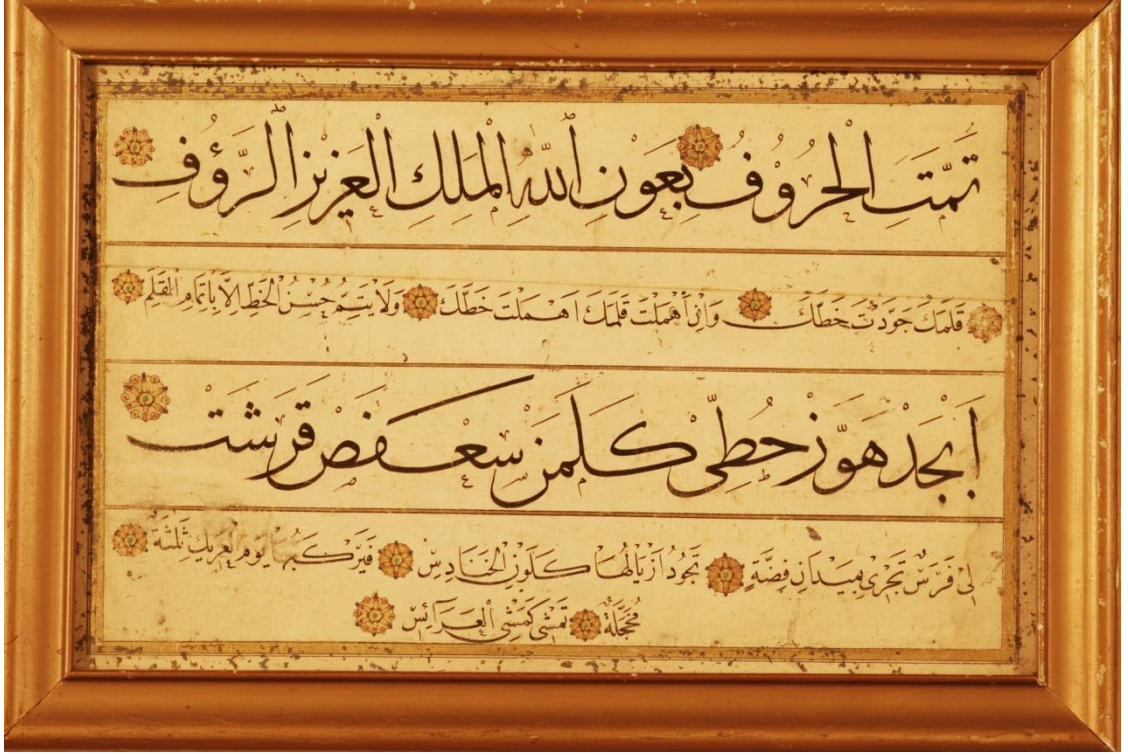 تَمَّتَ الْحُرُوْفُ بِعَوْنِ اللّٰهِ الْمَلِكِ الْعَزِيْزِ الرَّؤُفِ
قَلَمَكَ جَوَّدْتَ خَطَّكَ وَاِنْ اَهْمَلْتَ قَلَمَكَ اَهْمَلْتَ خَطَّكَ وَلَا يَتِمُّ حُسْنُ الْخَطِّ اِلَّا بِاِتْمَامِ الْقَلَمِ
اَبْجَدْ هَوَّزْ حُطِّى كَلَمَنْ سَعَفَصْ قَرَشَتْ
لِى فَرَسٌ تَجْرِى بِمَيْدَانِ فِضَّةٍ تَجُوْدُ اَزْيَالُهَا كَلَوْنِ الْحَنَادِسْ فَيَرْكَبُهَا يَوْمَ ثَلٰثَةٌ
مُحَجَّلَةٌ تَمْشِى كَمَشْىِ الْعَرَائِسْ